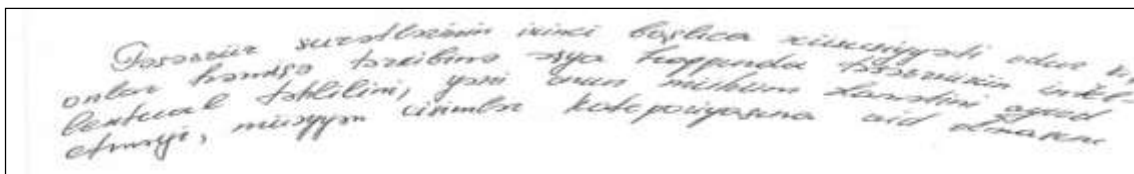 Təsəvvür surətlərinin ikinci başlıca xüsusiyyəti odur ki
onlar həmişə tərkibinə əşya haqqında təsəvvürün intel-
lektual təhlilini, yəni onun mühüm əlamətini ayırd
etməyi, müəyyən cisimlər kateqoriyasına aid olmasını